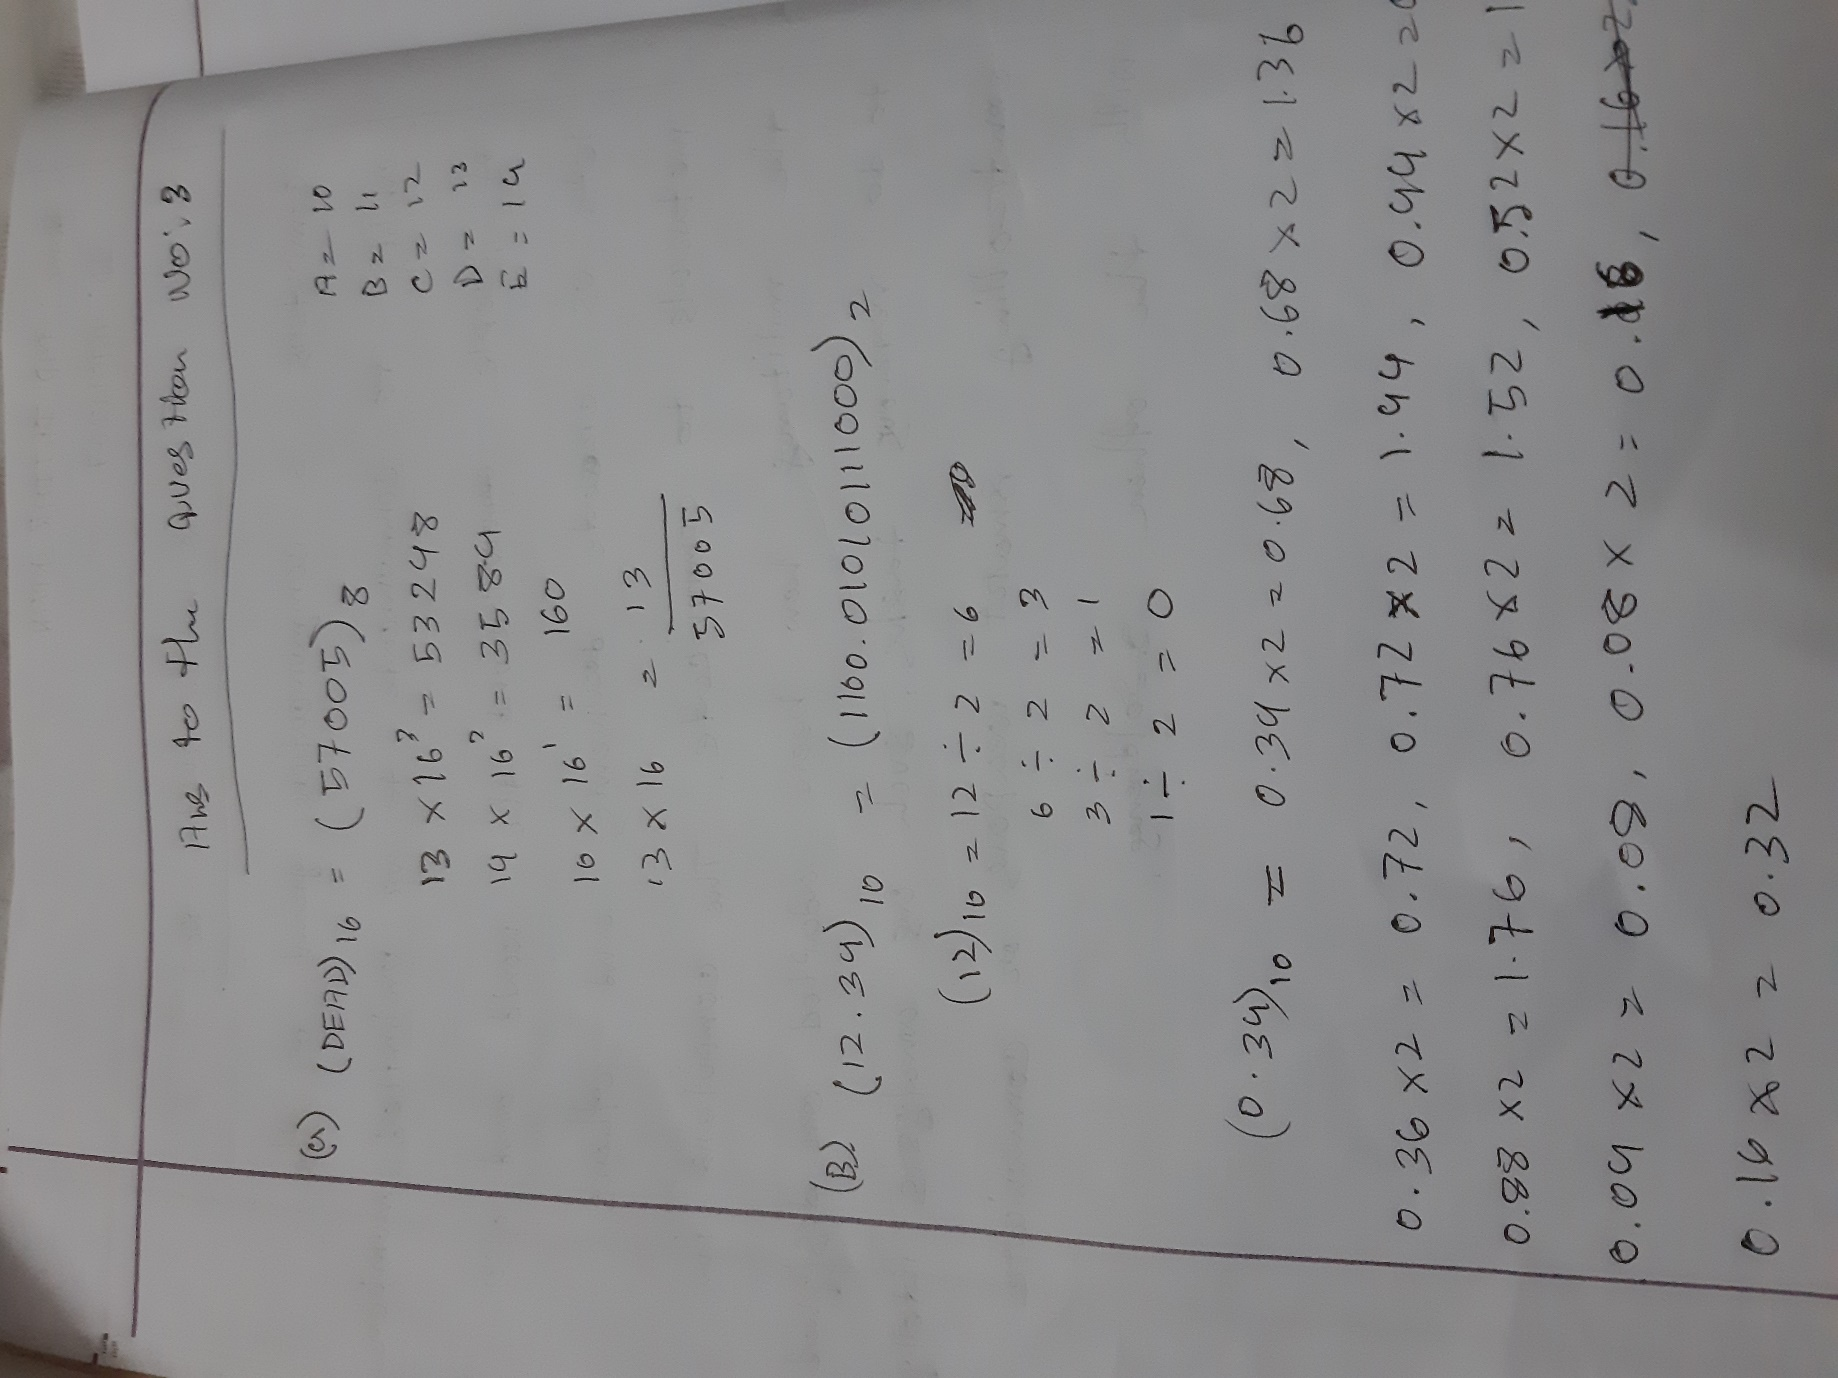 Ans to the question No: 3
(a) (DEAD)16 = (57005)8
A = 10
B = 11
C = 12
D = 13
E = 14
13 × 16³ = 53248
14 × 16² = 3584
10 × 16¹ = 160
13 × 16 = 13
57005
(B) (12.34)10 = (1100.01010111000)2
(12)10 = 12 ÷ 2 = 6
6 ÷ 2 = 3
3 ÷ 2 = 1
1 ÷ 2 = 0
(0.34)10 = 0.34 × 2 = 0.68, 0.68 × 2 = 1.36
0.36 × 2 = 0.72, 0.72 × 2 = 1.44, 0.44 × 2 = 0
0.88 × 2 = 1.76, 0.76 × 2 = 1.52, 0.52 × 2 = 1
0.04 × 2 = 0.08, 0.08 × 2 = 0.16, 0.16×2
0.16 × 2 = 0.32